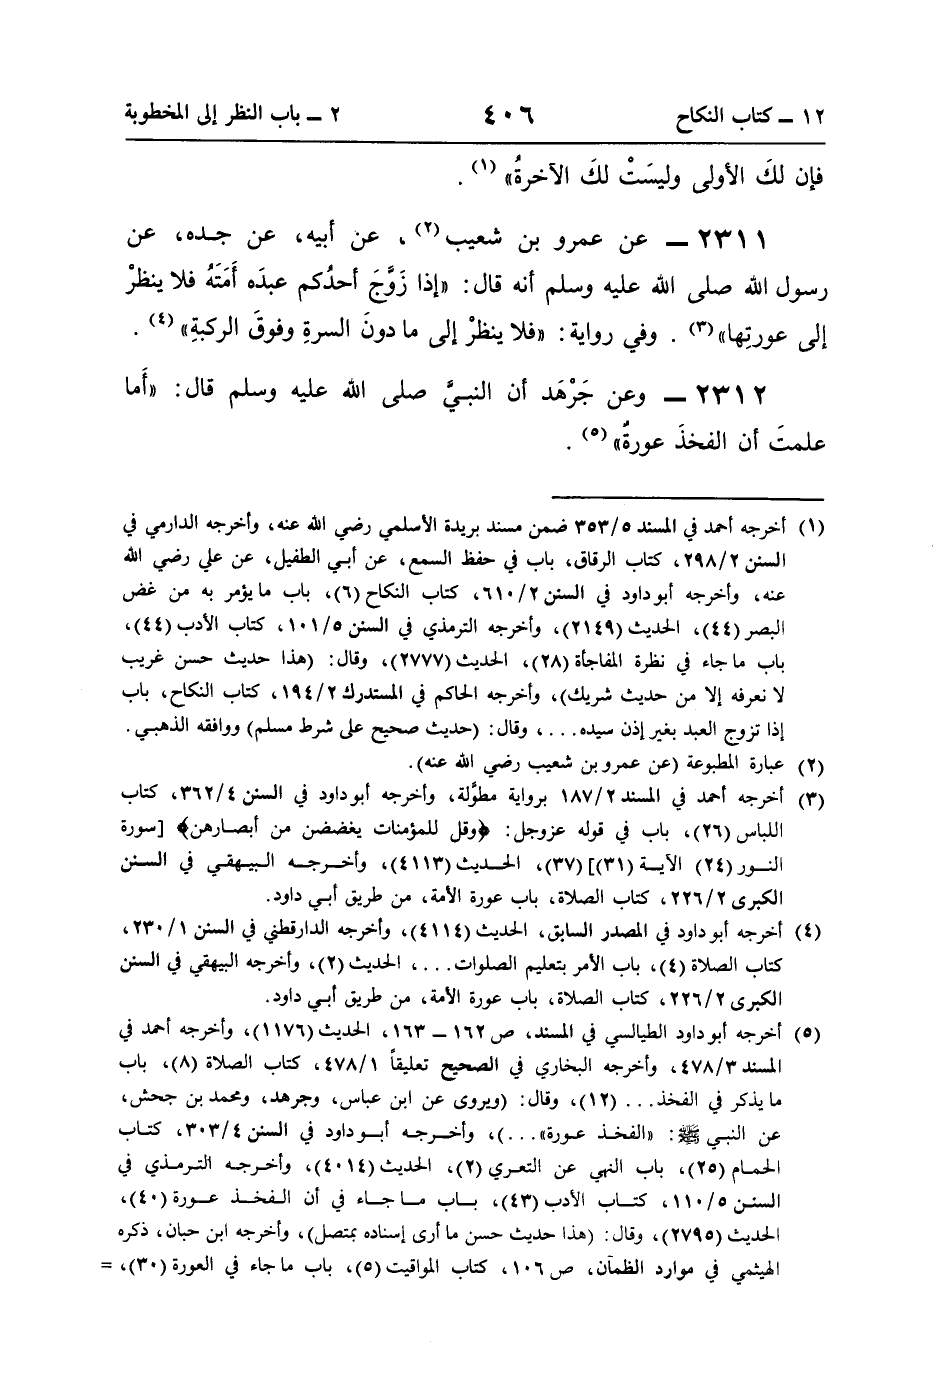 ١٢ ــ كتاب النكاح ٤٠٦ ٢ ــ باب النظر إلى المخطوبة
فإن لكَ الأولى وليسَتْ لكَ الآخرةُ» (١) .
٢٣١١ ــ عن عمرو بن شعيب (٢) ، عن أبيه، عن جده، عن
رسول الله صلى الله عليه وسلم أنه قال: «إذا زَوَّجَ أحدُكم عبدَه أَمَتَهُ فلا ينظرْ
إلى عورتِها» (٣) . وفي رواية: «فلا ينظرْ إلى ما دونَ السرةِ وفوقَ الركبةِ» (٤) .
٢٣١٢ ــ وعن جَرْهَد أن النبيَّ صلى الله عليه وسلم قال: «أَما
علمتَ أن الفخذَ عورةٌ» (٥) .
(١) أخرجه أحمد في المسند ٣٥٣/٥ ضمن مسند بريدة الأسلمي رضي الله عنه، وأخرجه الدارمي في
السنن ٢٩٨/٢، كتاب الرقاق، باب في حفظ السمع، عن أبي الطفيل، عن علي رضي الله
عنه، وأخرجه أبو داود في السنن ٦١٠/٢، كتاب النكاح (٦)، باب ما يؤمر به من غض
البصر (٤٤)، الحديث (٢١٤٩)، وأخرجه الترمذي في السنن ١٠١/٥، كتاب الأدب (٤٤)،
باب ما جاء في نظرة المفاجأة (٢٨)، الحديث (٢٧٧٧)، وقال: (هذا حديث حسن غريب
لا نعرفه إلا من حديث شريك)، وأخرجه الحاكم في المستدرك ١٩٤/٢، كتاب النكاح، باب
إذا تزوج العبد بغير إذن سيده...، وقال: (حديث صحيح على شرط مسلم) ووافقه الذهبي.
(٢) عبارة المطبوعة (عن عمرو بن شعيب رضي الله عنه).
(٣) أخرجه أحمد في المسند ١٨٧/٢ برواية مطوَّلة، وأخرجه أبو داود في السنن ٣٦٢/٤، كتاب
اللباس (٢٦)، باب في قوله عزوجل: ﴿وقل للمؤمنات يغضضن من أبصارهن﴾ [سورة
النور (٢٤) الآية (٣١)] (٣٧)، الحديث (٤١١٣)، وأخرجه البيهقي في السنن
الكبرى ٢٢٦/٢، كتاب الصلاة، باب عورة الأمة، من طريق أبي داود.
(٤) أخرجه أبو داود في المصدر السابق، الحديث (٤١١٤)، وأخرجه الدارقطني في السنن ٢٣٠/١،
كتاب الصلاة (٤)، باب الأمر بتعليم الصلوات...، الحديث (٢)، وأخرجه البيهقي في السنن
الكبرى ٢٢٦/٢، كتاب الصلاة، باب عورة الأمة، من طريق أبي داود.
(٥) أخرجه أبو داود الطيالسي في المسند، ص ١٦٢ ــ ١٦٣، الحديث (١١٧٦)، وأخرجه أحمد في
المسند ٤٧٨/٣، وأخرجه البخاري في الصحيح تعليقاً ٤٧٨/١، كتاب الصلاة (٨)، باب
ما يذكر في الفخذ... (١٢)، وقال: (ويروى عن ابن عباس، وجرهد، ومحمد بن جحش،
عن النبي ﷺ: «الفخذ عورة»...)، وأخرجه أبو داود في السنن ٣٠٣/٤، كتاب
الحمام (٢٥)، باب النهي عن التعري (٢)، الحديث (٤٠١٤)، وأخرجه الترمذي في
السنن ١١٠/٥، كتاب الأدب (٤٣)، باب ما جاء في أن الفخذ عورة (٤٠)،
الحديث (٢٧٩٥)، وقال: (هذا حديث حسن ما أرى إسناده بمتصل)، وأخرجه ابن حبان، ذكره
الهيثمي في موارد الظمآن، ص ١٠٦، كتاب المواقيت (٥)، باب ما جاء في العورة (٣٠)، =